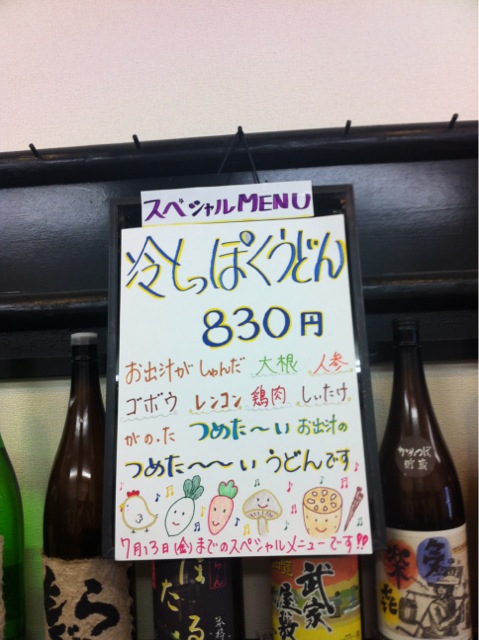 スペシャルMENU
冷しっぽくうどん
830円
お出汁がしゅんだ 大根 人参
ゴボウ レンコン 鶏肉 しぃたけ
がのった つめた〜い お出汁の
つめた〜〜い うどんです♪
7月13日(金)までのスペシャルメニューです!!
かめつぼ
貯蔵
武家
屋敷
ほたる